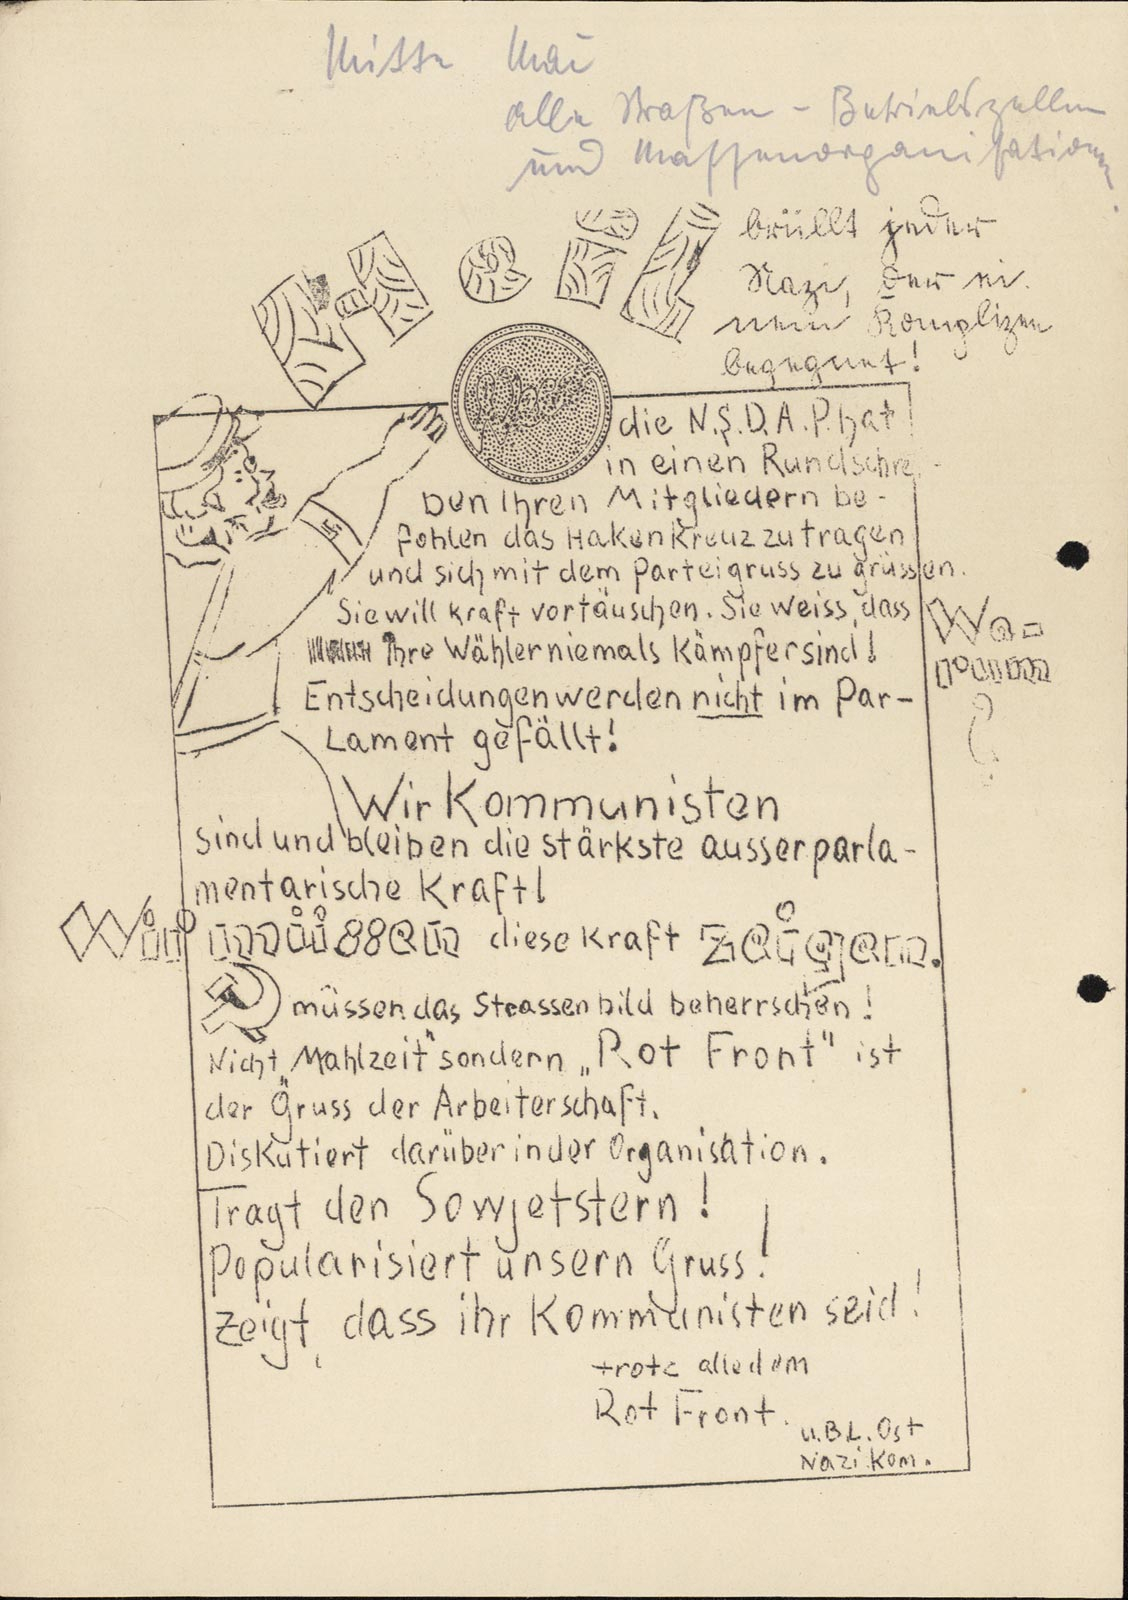 Mitte Mai
alle Straßen - Betriebszellen
und Massenorganisationen.
Heil brüllt jeder
Nazi, der ei.
nem Komplizen
begegnet!
die N.S.D.A.P. hat
in einen Rundschrei-
ben Ihren Mitgliedern be-
fohlen das Hakenkreuz zu tragen
und sich mit dem Parteigruss zu grüssen.
Sie will kraft vortäuschen. Sie weiss, dass
Ihre Wähler niemals Kämpfer sind!
Wa-
rum
?
Entscheidungen werden nicht im Par-
Lament gefällt!
Wir Kommunisten
sind und bleiben die stärkste ausserparla-
mentarische Kraft!
Wir müssen diese Kraft zeigen.
müssen das Strassenbild beherrschen!
Nicht „Mahlzeit" sondern „Rot Front" ist
der Gruss der Arbeiterschaft.
Diskutiert darüber in der Organisation.
Tragt den Sowjetstern!
Popularisiert unsern Gruss!
Zeigt, dass ihr Kommunisten seid!
trotz alledem
Rot Front.
U.B.L. Ost
Nazi Kom.